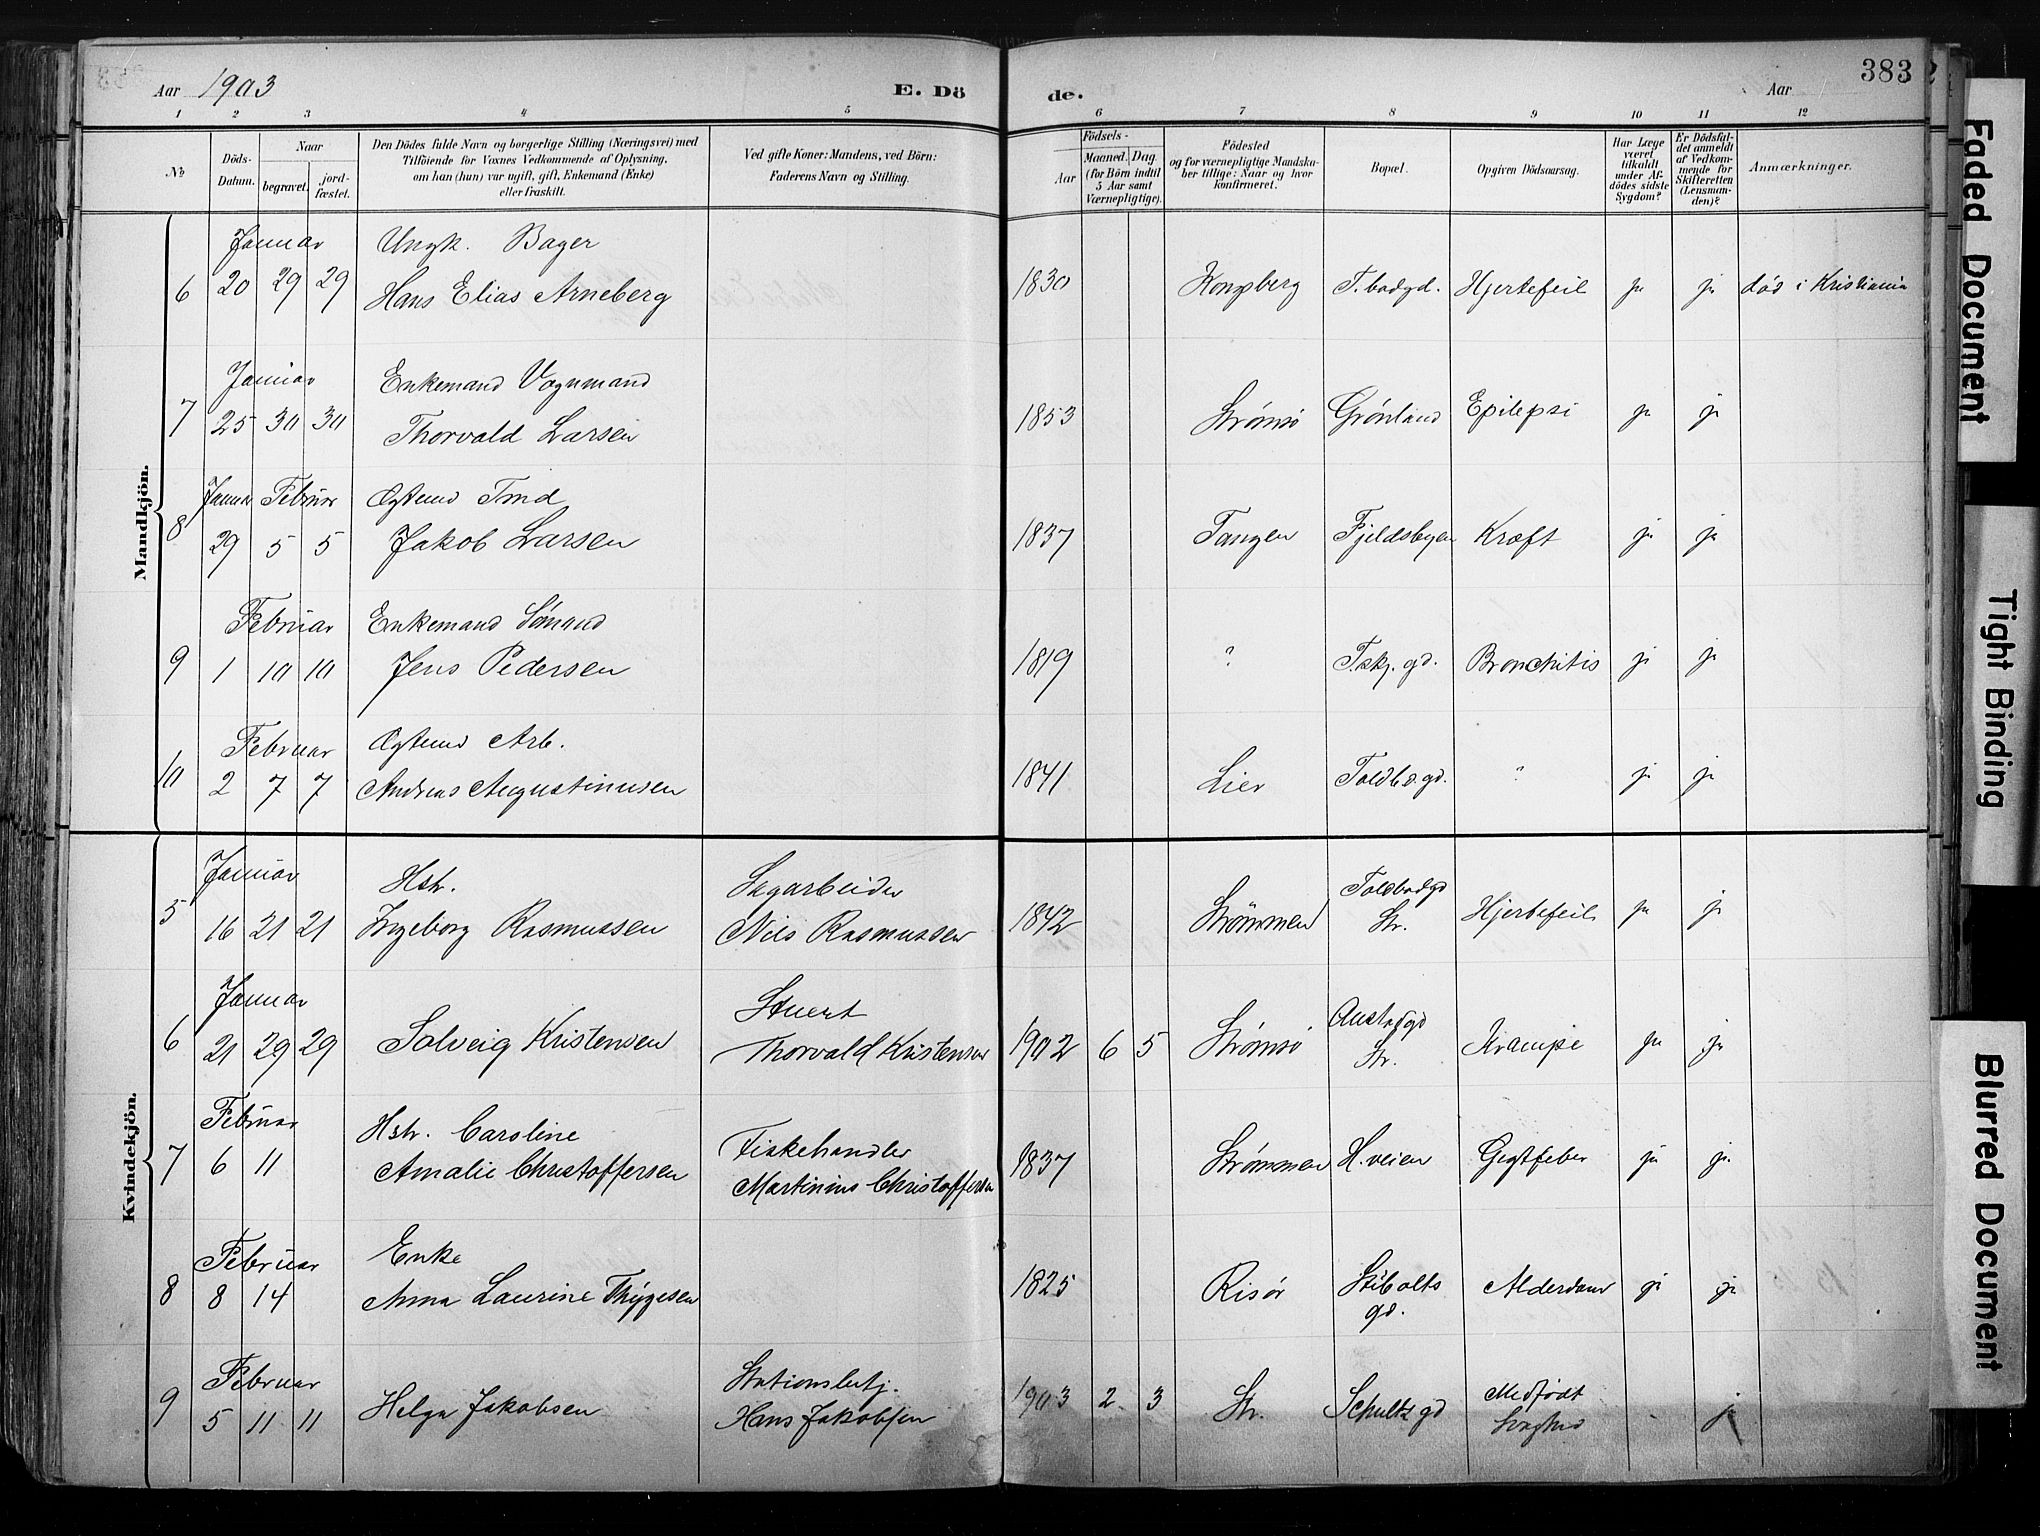 383
Aar 1903
E. Dö
de.
Aar
1 2 3 4 5 6 7 8 9 10 11 12
№
Döds-Datum.
Naar
begravet.
jord-fæstet.
Den Dödes fulde Navn og borgerlige Stilling (Næringsvei) med
Tilföiende for Voxnes Vedkommende af Oplysning,
om han (hun) var ugift, gift, Enkemand (Enke)
eller fraskilt.
Ved gifte Koner: Mandens, ved Börn:
Faderens Navn og Stilling.
Födsels-
Aar
Maaned.
Dag.
(for Börn indtil
5 Aar samt
Værnepligtige).
Födested
og for værnepligtige Mandska-
ber tillige: Naar og hvor
konfirmeret.
Bopæl.
Opgiven Dödsaarsag.
Har Læge
været
tilkaldt
under Af-
dödes sidste
Sygdom?
Er Dödsfal-
det anmeldt
af Vedkom-
mende for
Skifteretten
(Lensman-
den)?
Anmærkninger.
Mandkjön.
Januar Ungk. Bager
6 20 29 29 Hans Elias Arneberg 1830 Kongsberg T.bodgd. Hjertefeil ja ja död i Kristiania
Januar Enkemand Vognmand
7 25 30 30 Thorvald Larsen 1853 Strømsø Grønland Epilepsi ja ja
Januar Februar Ægtemd Tmd
8 29 5 5 Jakob Larsen 1837 Tangen Fjeldsbyen Kræft ja ja
Februar Enkemand Sømand
9 1 10 10 Jens Pedersen 1819 " T.skj.gd. Bronchitis ja ja
Februar Ægtemd Arb.
10 2 7 7 Andreas Augustinusen 1841 Lier Toldb.gd. " ja ja
Kvindekjön.
Januar Hstr. Sagarbeider Toldbodgd
5 16 21 21 Ingeborg Rasmussen Nils Rasmussen 1842 Strømmen Str. Hjertefeil ja ja
Januar Stuert
6 21 29 29 Solveig Kristensen Thorvald Kristensen 1902 6 5 Strømsø Str. Krampe ja ja
Februar Hstr. Caroline Fiskehandler
7 6 11 Amalie Christoffersen Martinius Christoffersen 1837 Strømmen H.veien Gigtfeber ja ja
Februar Enke
8 8 14 Anna Laurine Thygesen 1825 Risør Stibolts gd. Alderdom ja ja
Februar Stationsbetj. Medfødt
9 5 11 11 Helga Jakobsen Hans Jakobsen 1903 2 3 Str. Schultz gd Svaghed ja
Faded Document
Tight Binding
Blurred Document